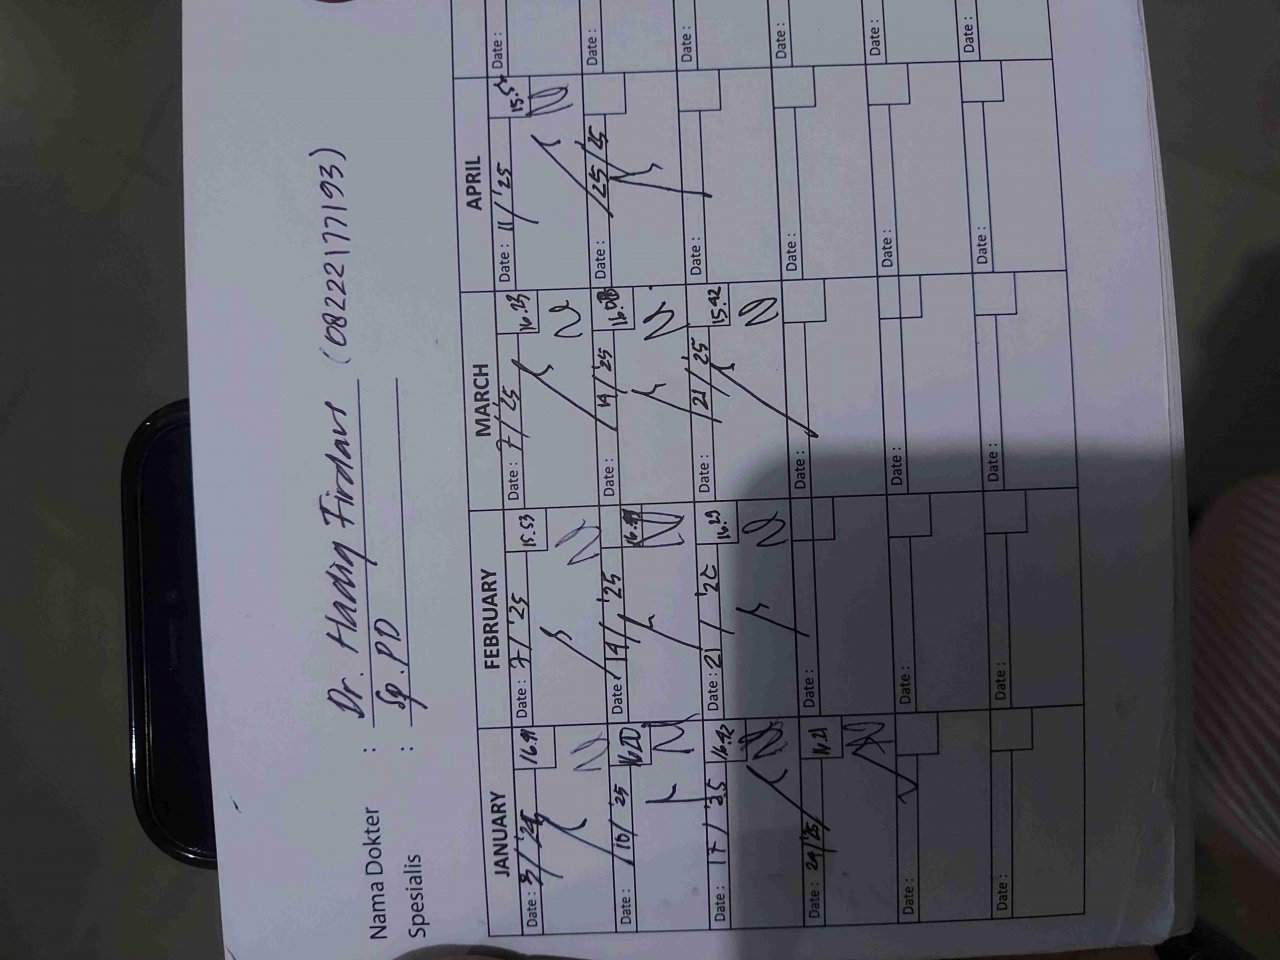 Nama Dokter : Dr. Hadiq Firdaus (0822177193)
Spesialis : Sp.PD
JANUARY FEBRUARY MARCH APRIL
Date: 3/'25 16.41 Date: 7/'25 15.53 Date: 7/'25 16.23 Date: 11/'25 Date:
Date: 10/'25 16.20 Date: 14/'25 Date: 14/'25 16.08 Date: 25/25 Date:
Date: 17/'25 16.42 Date: 21/'25 16.29 Date: 21/'25 15.42 Date: Date:
Date: 24/'25 16.21 Date: Date: Date: Date:
Date: Date: Date: Date: Date:
Date: Date: Date: Date: